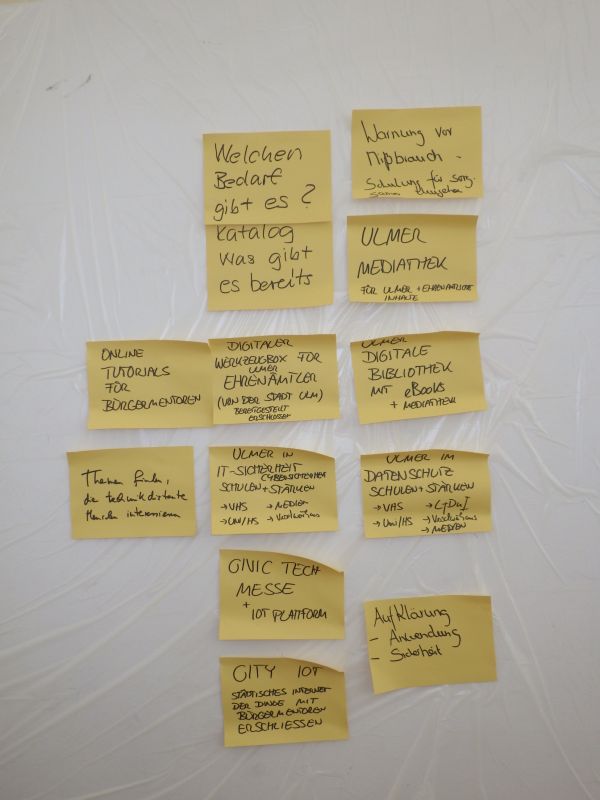 Welchen
Bedarf
gibt es?
Katalog
was gibt
es bereits
Warnung vor
Mißbrauch -
Schulung für sorg-
sames
ULMER
MEDIATHEK
FÜR ULMER + EHRENAMTLICHE
INHALTE
ONLINE
TUTORIALS
FÜR
BÜRGERMENTOREN
DIGITALER
WERKZEUGBOX FÜR
ULMER
EHRENÄMTLER
(VON DER STADT ULM)
BEREITGESTELLT
ERSCHLOSSEN
ULMER
DIGITALE
BIBLIOTHEK
MIT eBooks
+ MEDIATHEK
Themen finden,
die technikdistante
Menschen interessieren
ULMER IN
IT-SICHERHEIT
CYBERSICHERHEIT
SCHULEN + STÄRKEN
→ VHS → MEDIEN
→ UNI/HS → Vorlesungen
ULMER IM
DATENSCHUTZ
SCHULEN + STÄRKEN
→ VHS → LfDuI
→ Uni/HS →
→ MEDIEN
CIVIC TECH
MESSE
+ IOT PLATTFORM
Aufklärung
- Anwendung
- Sicherheit
CITY IOT
STÄDTISCHES INTERNET
DER DINGE MIT
BÜRGERMENTOREN
ERSCHLIESSEN